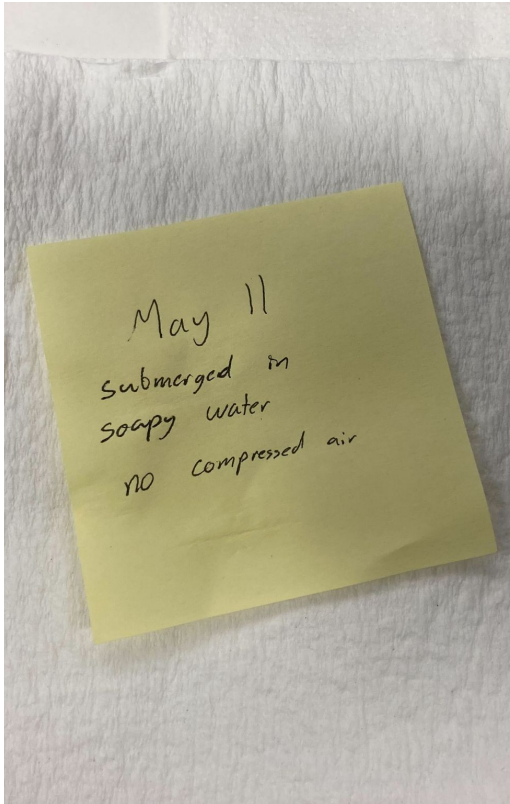 May 11
submerged in
soapy water
no compressed air